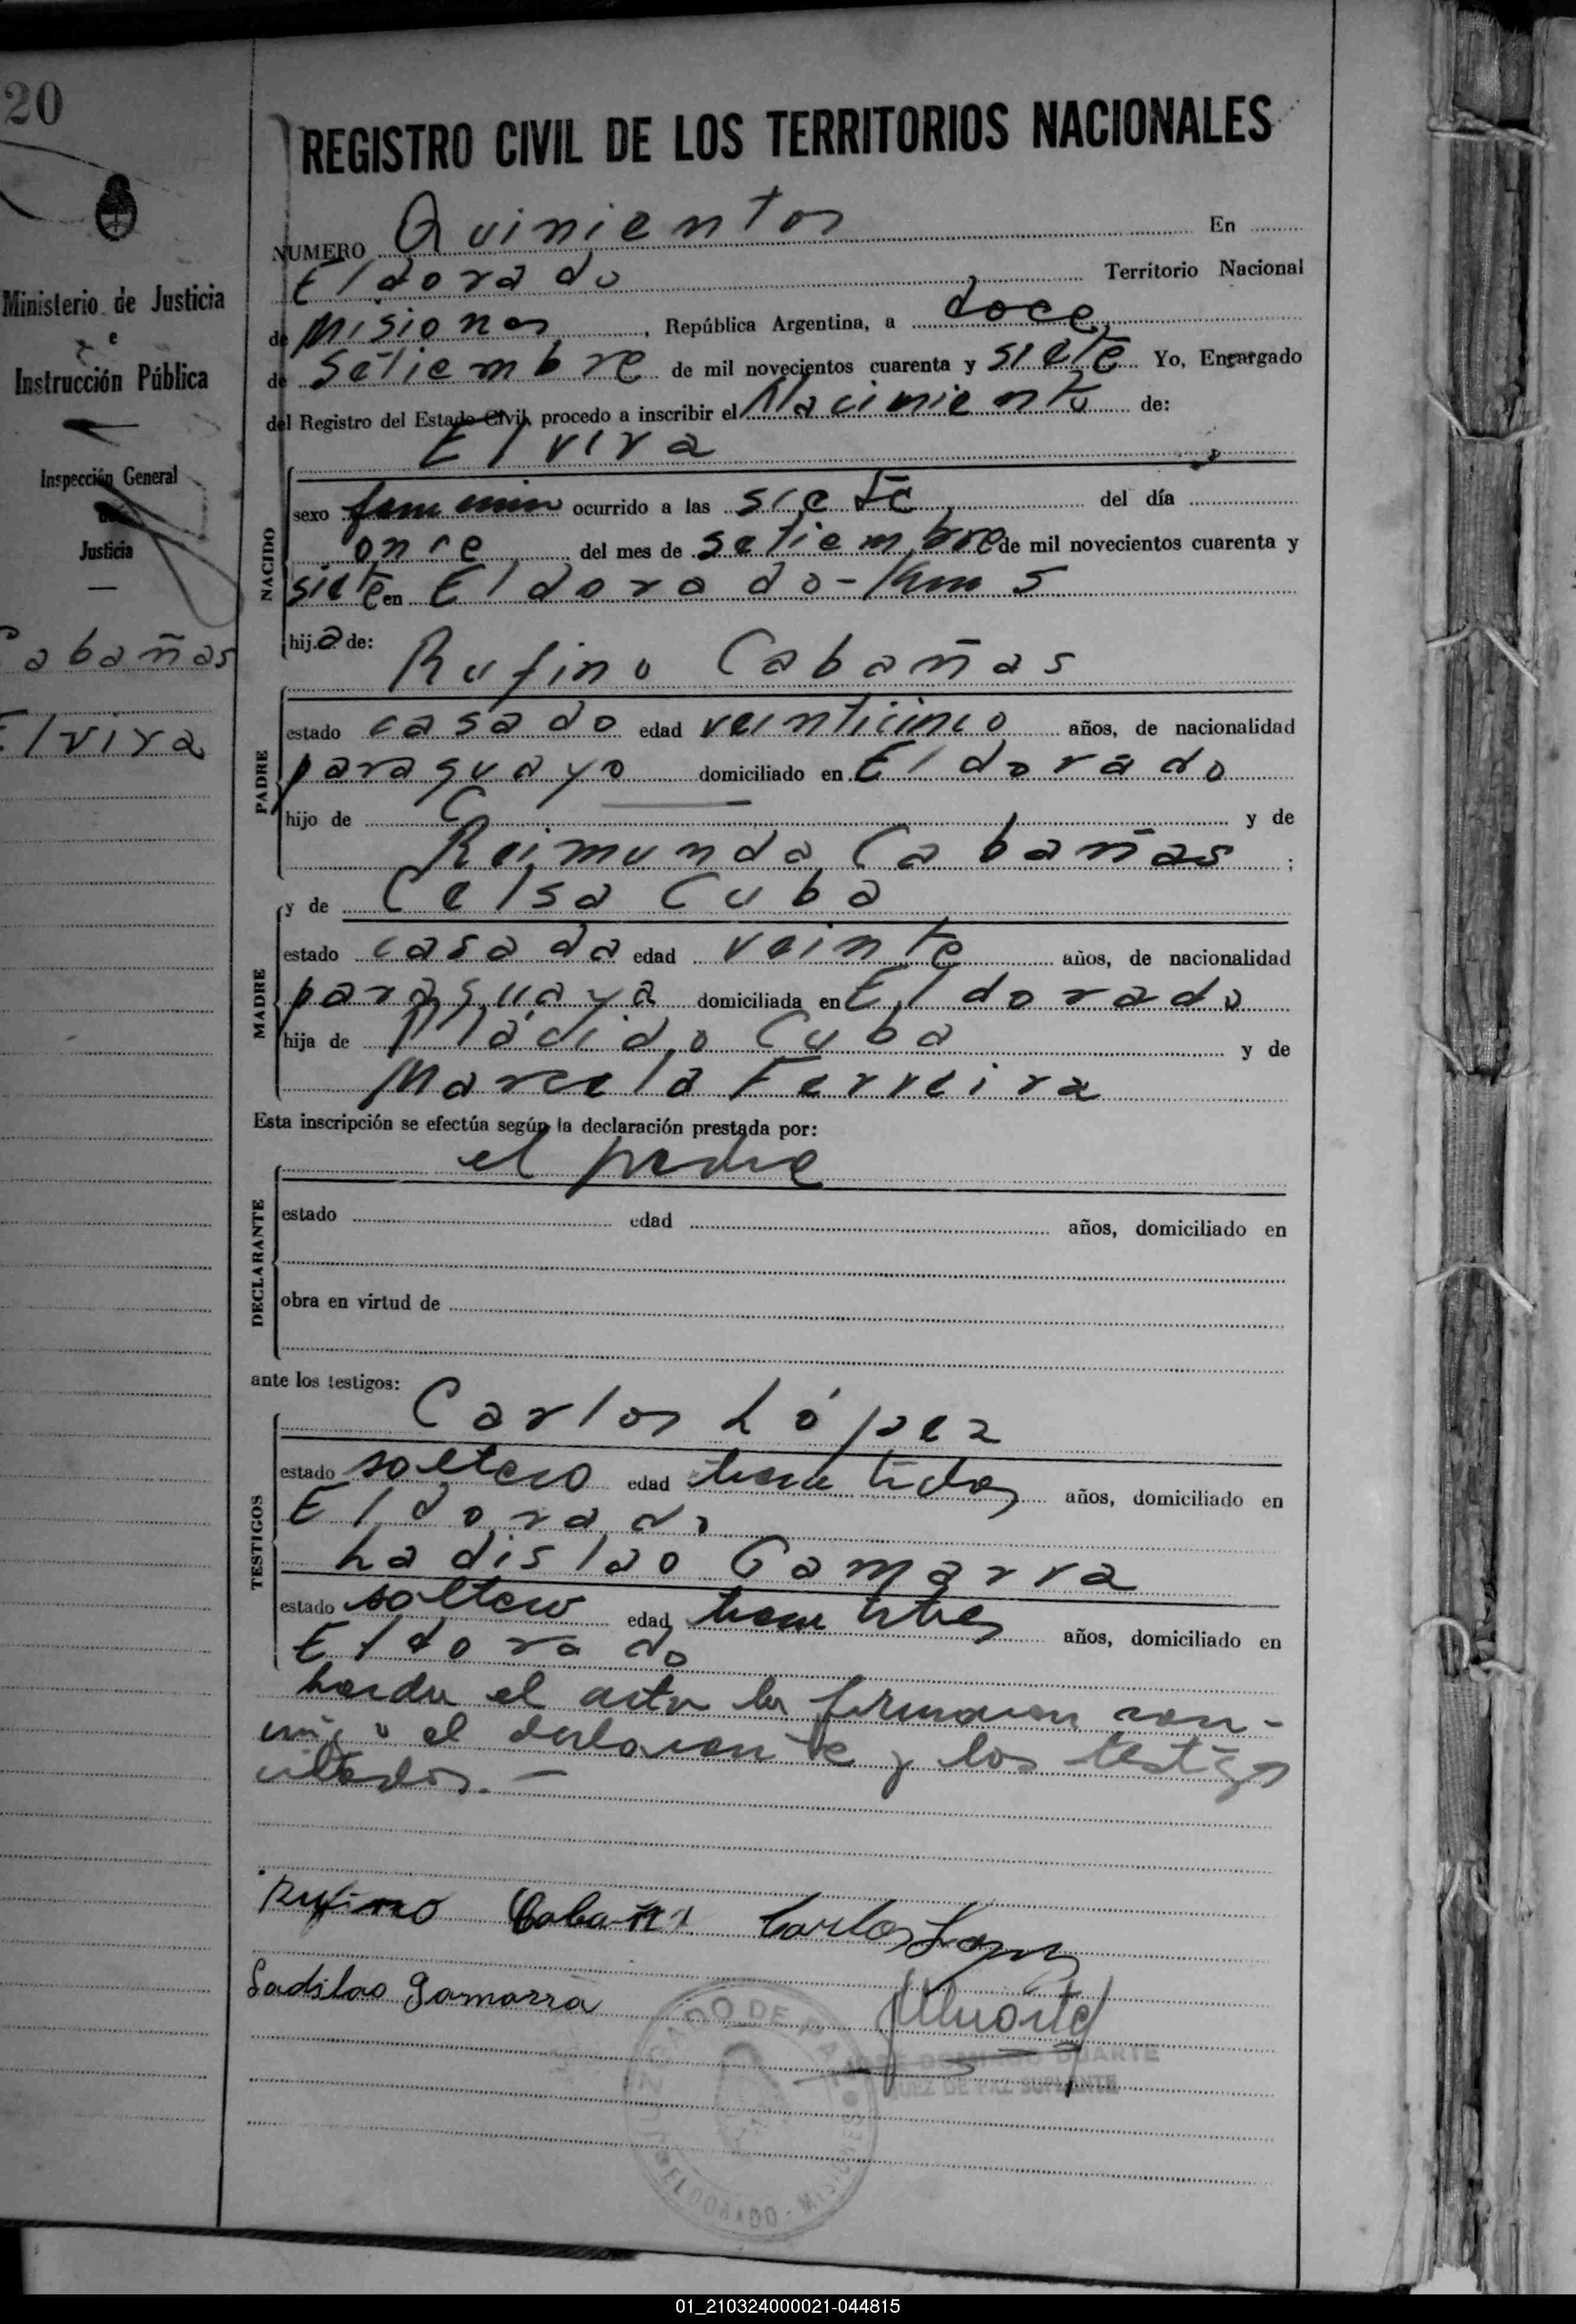 20
Ministerio de Justicia
e
Instrucción Pública
Inspección General
de
Justicia
Cabañas
Elvira
REGISTRO CIVIL DE LOS TERRITORIOS NACIONALES
NUMERO Quinientos En
Eldorado Territorio Nacional
de Misiones, República Argentina, a doce
de Setiembre de mil novecientos cuarenta y siete Yo, Encargado
del Registro del Estado Civil, procedo a inscribir el Nacimiento de:
Elvira
NACIDO
sexo femenino ocurrido a las siete del día
once del mes de setiembre de mil novecientos cuarenta y
siete en Eldorado - Km 5
hija de: Rufino Cabañas
PADRE
estado casado edad veinticinco años, de nacionalidad
paraguayo domiciliado en Eldorado
hijo de y de
Reimunda Cabañas;
y de Celsa Cuba
MADRE
estado casada edad veinte años, de nacionalidad
paraguaya domiciliada en Eldorado
hija de Pládido Cuba y de
Marcela Ferreira
Esta inscripción se efectúa según la declaración prestada por:
el padre
DECLARANTE
estado edad años, domiciliado en
obra en virtud de
ante los testigos:
Carlos López
TESTIGOS
estado soltero edad treinta años, domiciliado en
Eldorado
Ladislao Gamarra
estado soltero edad años, domiciliado en
Eldorado
Leida el acta la firmaron con-
migo el declarante y los testigos
citados. -
Rufino Cabañas Carlos Lopez
Ladislao Gamarra
JUZGADO DE PAZ
ELDORADO - MISIONES
JOSE DOMINGO DUARTE
JUEZ DE PAZ SUPLENTE
01_210324000021-044815